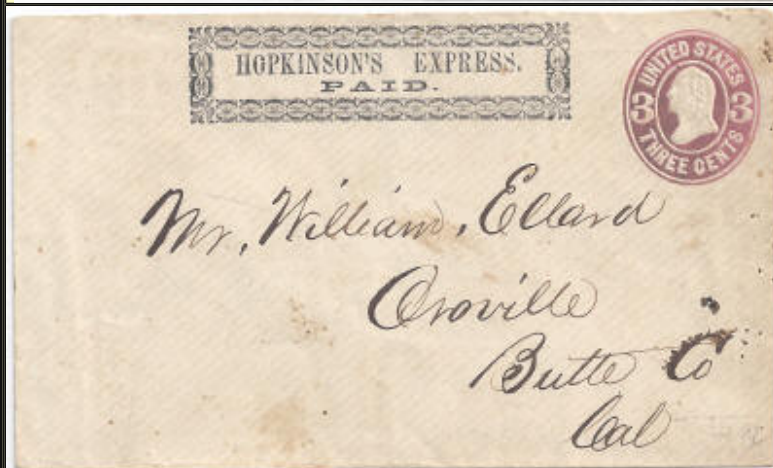 HOPKINSON'S EXPRESS.
PAID.
UNITED STATES
3 3
THREE CENTS
Mr. William, Ellard
Oroville
Butte Co
Cal